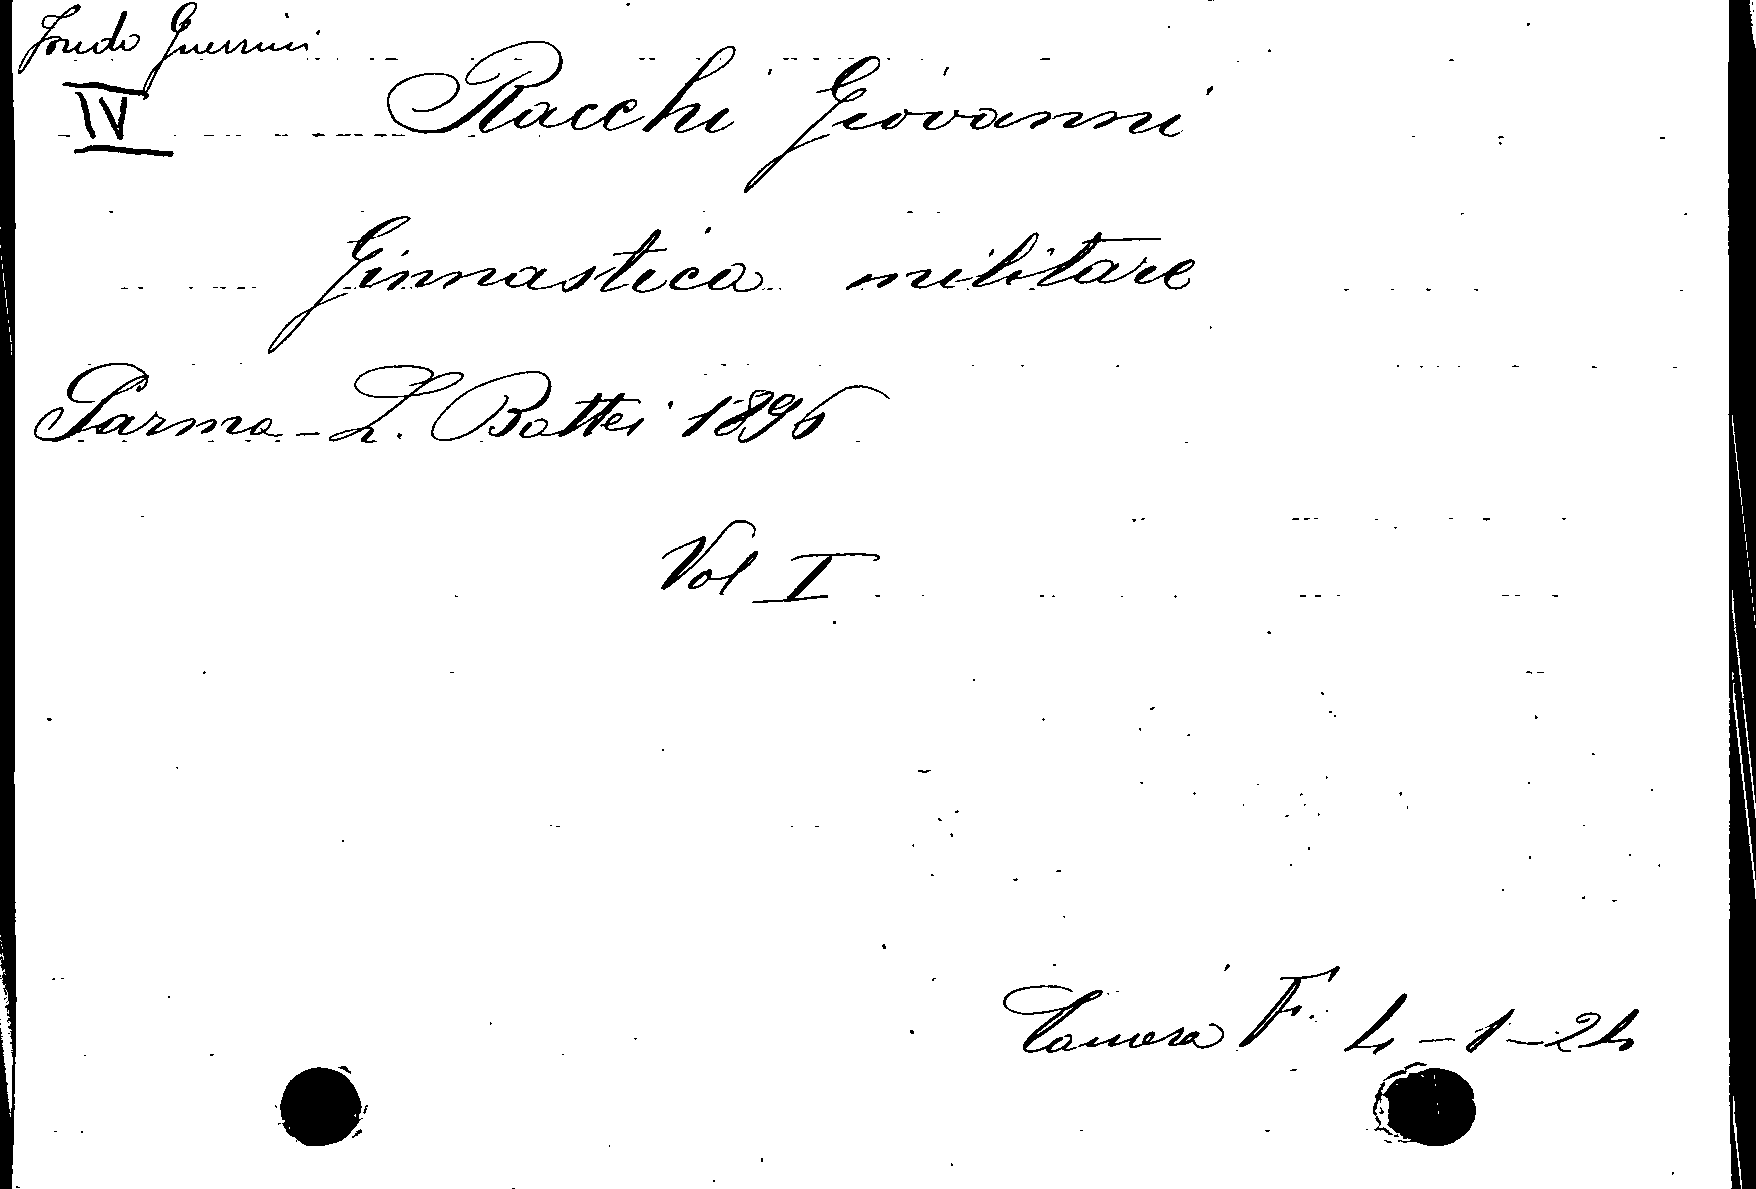 Fondo Guerrini
IV
Racchi Giovanni
Ginnastica militare
Parma - L. Battei 1896
Vol I
Camera F. 4-1-24